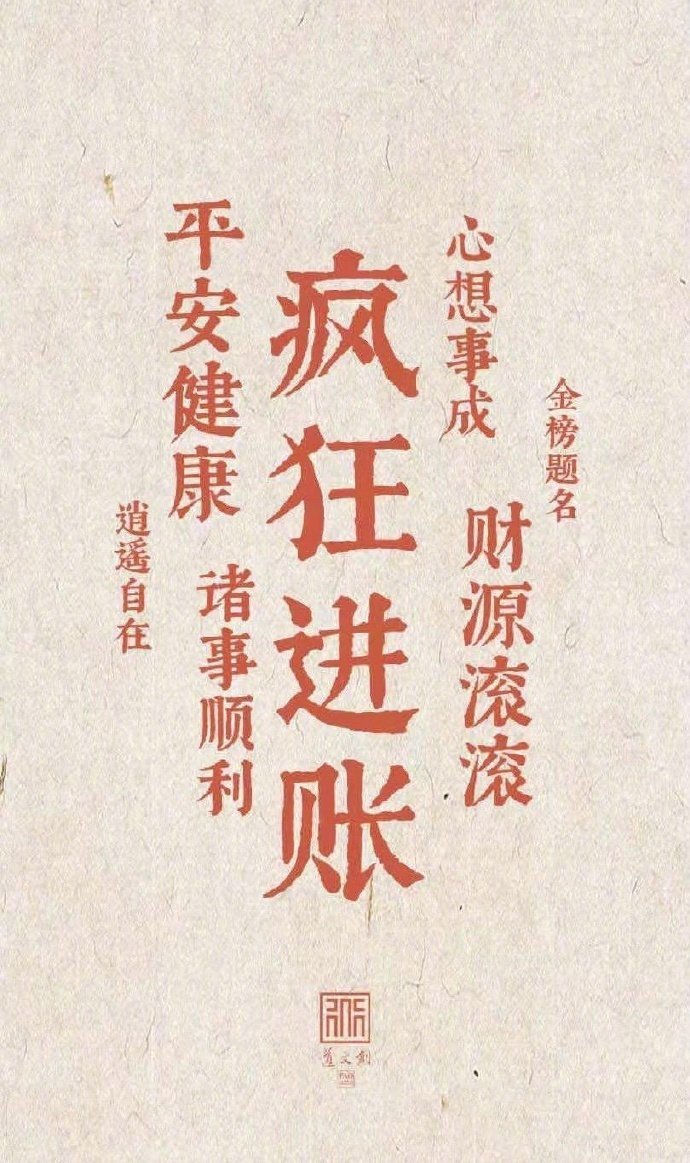 金榜题名
心想事成
财源滚滚
疯狂进账
平安健康
诸事顺利
逍遥自在